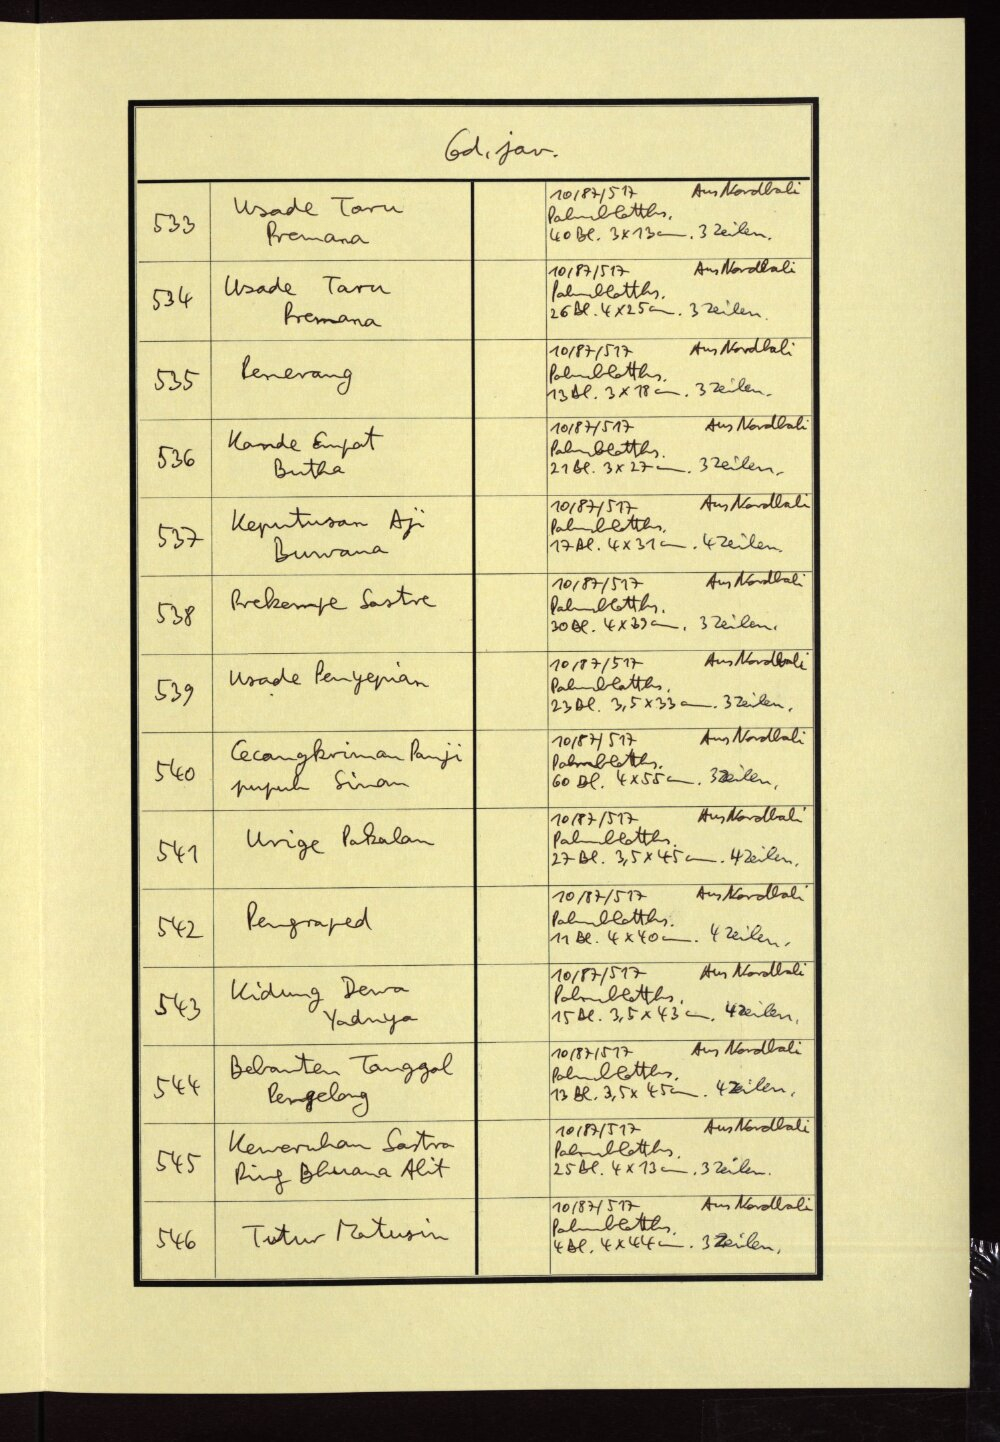 Cod. jav.
533
Usade Taru
Premana
10/87/517 Aus Nordbali
Palmblatths.
40 Bl. 3x13 cm. 3 Zeilen.
534
Usade Taru
Premana
10/87/517 Aus Nordbali
Palmblatths.
26 Bl. 4x25 cm. 3 Zeilen.
535
Penerang
10/87/517 Aus Nordbali
Palmblatths.
13 Bl. 3x18 cm. 3 Zeilen.
536
Kande Empat
Butha
10/87/517 Aus Nordbali
Palmblatths.
21 Bl. 3x27 cm. 3 Zeilen.
537
Keputusan Aji
Buwana
10/87/517 Aus Nordbali
Palmblatths.
17 Bl. 4x31 cm. 4 Zeilen.
538
Prekempe Sastre
10/87/517 Aus Nordbali
Palmblatths.
30 Bl. 4x cm. 3 Zeilen.
539
Usade Penyepian
10/87/517 Aus Nordbali
Palmblatths.
23 Bl. 3,5x33 cm. 3 Zeilen.
540
Cecangkriman Panji
pupuh Sinom
10/87/517 Aus Nordbali
Palmblatths.
60 Bl. 4x55 cm. 3 Zeilen.
541
Urige Pakalan
10/87/517 Aus Nordbali
Palmblatths.
27 Bl. 3,5x45 cm. 4 Zeilen.
542
Pengraped
10/87/517 Aus Nordbali
Palmblatths.
11 Bl. 4x40 cm. 4 Zeilen.
543
Kidung Dewa
Yadnya
10/87/517 Aus Nordbali
Palmblatths.
15 Bl. 3,5x43 cm. 4 Zeilen.
544
Bebanten Tanggal
Pengelong
10/87/517 Aus Nordbali
Palmblatths.
13 Bl. 3,5x45 cm. 4 Zeilen.
545
Keweruhan Sastra
Ring Bhuana Alit
10/87/517 Aus Nordbali
Palmblatths.
25 Bl. 4x13 cm. 3 Zeilen.
546
Tutur Matusin
10/87/517 Aus Nordbali
Palmblatths.
4 Bl. 4x44 cm. 3 Zeilen.